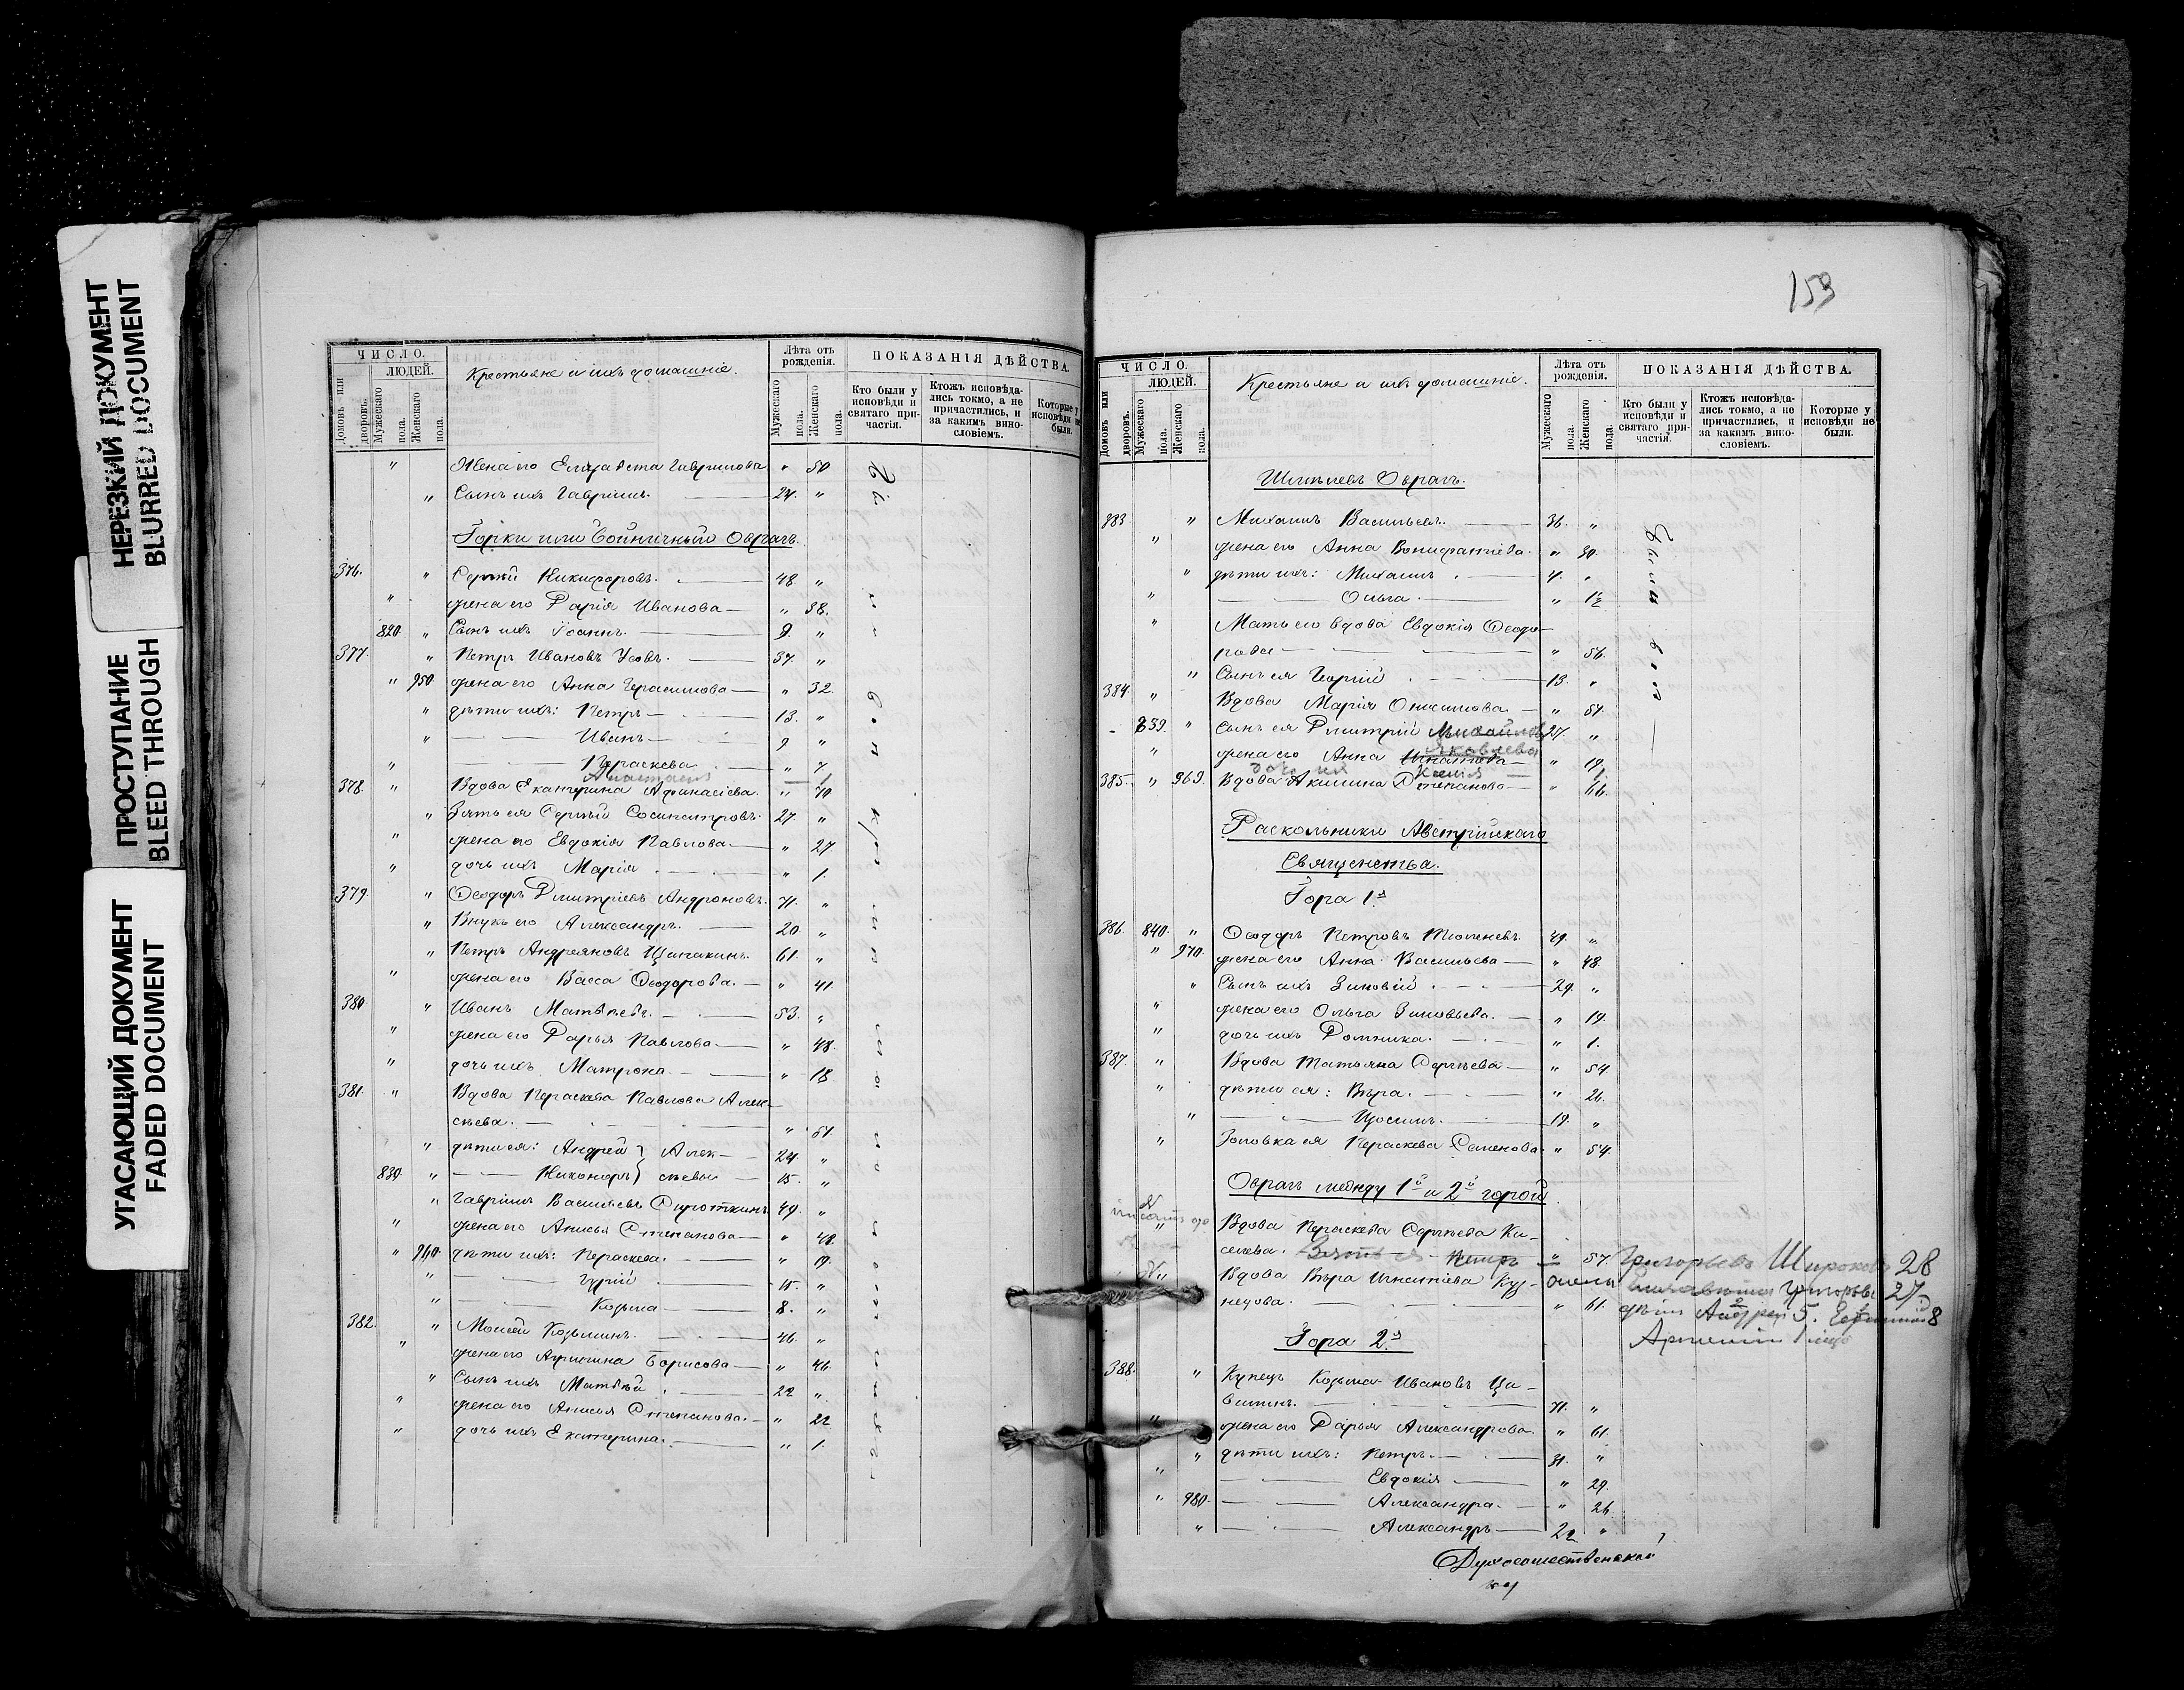 НЕРЕЗКИЙ ДОКУМЕНТ
BLURRED DOCUMENT
ПРОСТУПАНИЕ
BLEED THROUGH
УГАСАЮЩИЙ ДОКУМЕНТ
FADED DOCUMENT
ЧИСЛО.
ЛЮДЕЙ.
Домовъ или дворовъ.
Мужескаго пола.
Женскаго пола.
Крестьяне и ихъ домашніе.
Лѣта отъ рожденія.
Мужескаго пола.
Женскаго пола.
ПОКАЗАНІЯ ДѢЙСТВА.
Кто были у исповѣди и святаго причастія.
Ктожъ исповѣдались токмо, а не причастились, и за какимъ винословіемъ.
Которые у исповѣди не были.
" Жена его Елизавета Гаврилова " 50
" Сынъ ихъ Гавріилъ. 24. "
Горки или Оврагъ.
376. " Сергѣй Никифоровъ. 48 "
" жена его Дарія Иванова " 38.
820. " Сынъ ихъ Іоаннъ. 9. "
377. " Петръ Ивановъ Усовъ. 37. "
" 950 жена его Анна Герасимова " 32.
" дѣти ихъ: Петръ 13. "
" Иванъ 9 "
" Параскева " 7
Анастасія 1.
378. " Вдова Екатерина Афанасіева. " 70
" Зять ея Сергѣй Сосипатровъ. 27. "
" жена его Евдокія Павлова " 27
" дочь ихъ Марія " 1.
379. " Ѳеодоръ Дмитріевъ Андроновъ. 71. "
" Внукъ его Александръ. 20 "
" Петръ Андреяновъ 61. "
" жена его Васса Ѳеодорова. " 41.
380. " Иванъ Матвѣевъ. 53. "
" жена его Дарья Павлова " 48.
" дочь ихъ Матрона. " 18.
381. " Вдова Параскева Павлова Алек-
сѣева. " 51.
" дѣти ея: Андрей } Алек- 24 "
830. " Никоноръ } сѣевы 15. "
" Гавріилъ Васильевъ Сироткинъ 49. "
" жена его Анисья Степанова " 48.
" 960. дѣти ихъ: Параскева. " 19.
" Гурій 15. "
" Козьма 8. "
382. " Моисей Козьминъ. 46. "
" жена его Агрипина Борисова " 46.
" Сынъ ихъ Матвѣй 22 "
" жена его Анисья Степанова. " 22
" дочь ихъ Екатерина. " 1.
153
ЧИСЛО.
ЛЮДЕЙ.
Домовъ или дворовъ.
Мужескаго пола.
Женскаго пола.
Крестьяне и ихъ домашніе.
Лѣта отъ рожденія.
Мужескаго пола.
Женскаго пола.
ПОКАЗАНІЯ ДѢЙСТВА.
Кто были у исповѣди и святаго причастія.
Ктожъ исповѣдались токмо, а не причастились, и за какимъ винословіемъ.
Которые у исповѣди не были.
Овраг.
383 " Михаилъ Васильевъ. 36. "
" жена его Анна Вонифантіева. " 30.
" дѣти ихъ: Михаилъ 4. "
" Ольга. " 1½
" Мать его вдова Евдокія Ѳеодо-
рова " 56.
" Сынъ ея Георгій 13. "
384. " Вдова Марія Онисимова. " 57.
839. " Сынъ ея Дмитрій Михайловъ 27. "
Яковлева
" жена его Анна Игнатіева " 19.
дочь ихъ Ксенія 1.
385. " 969. Вдова Акилина Степанова " 66.
Раскольники Австрійскаго
Священства.
Гора 1я
386. 840. " Ѳеодоръ Петровъ Тюленевъ. 49. "
" 970. жена его Анна Васильева " 48.
" Сынъ ихъ Зиновій 29. "
" жена его Ольга Зиновьева. " 19.
" дочь ихъ Домника. " 1.
387. " Вдова Татьяна Сергѣева " 54.
" дѣти ея: Вѣра. " 26.
" 19. "
" Золовка ея Параскева Семенова. " 54.
Оврагъ между 1й и 2й горой.
" Вдова Параскева Сергѣева Ки-
селева. Зять ея Петръ " 57. Григорьевъ Широковъ 28
" Вдова Вѣра Игнатіева Куз- жена Елизавета Григорьева 27
нецова. " 61. дѣти Андрей 5.
Арсеній 1
Гора 2я
388. " Купецъ Козьма Ивановъ 71. "
" жена его Дарья Александрова. " 61.
" дѣти ихъ: Петръ. 31. "
" Евдокія " 29.
" 980. Александра. " 26.
" Александръ 22 "
Духосошественской